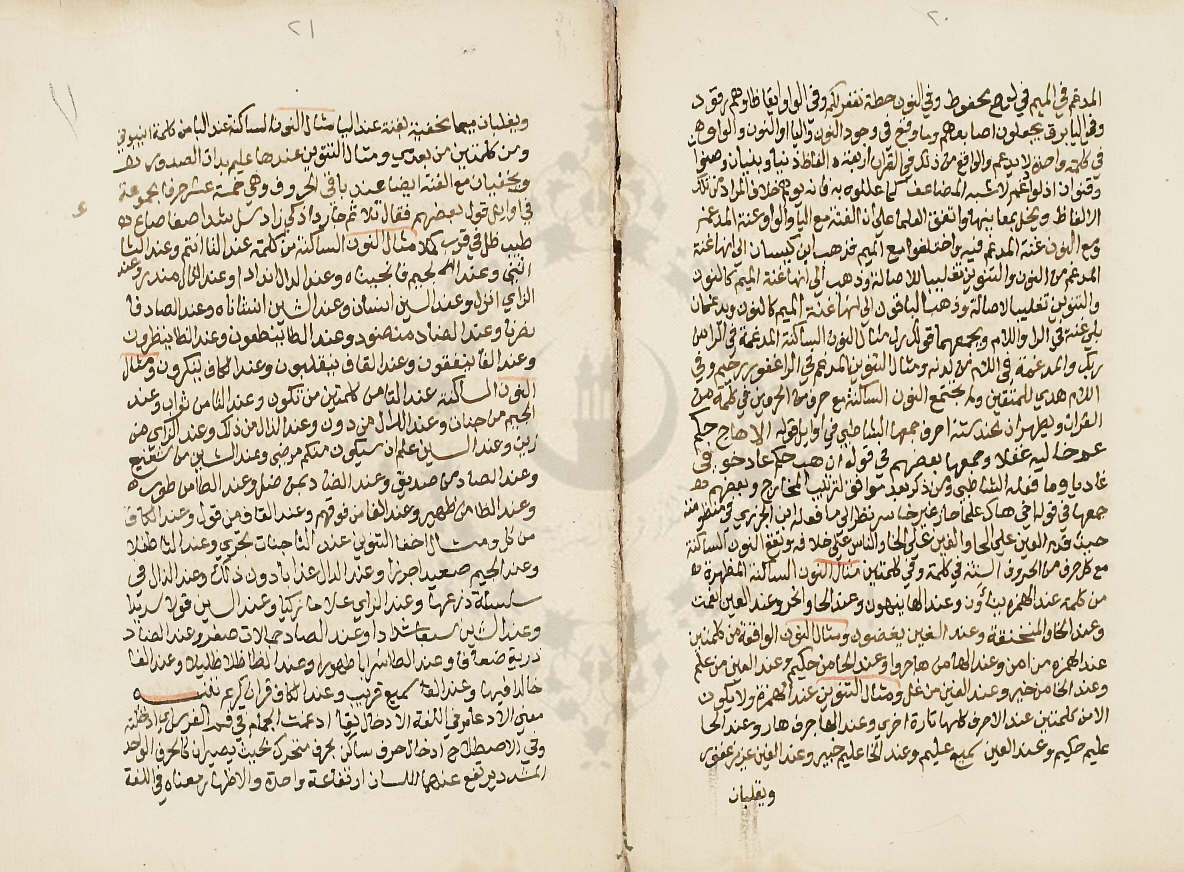 ٢٠
المدغم في الميم في لوح محفوظ وفي النون حطة نغفر لكم وفي الواو ايقاظا وهم رقود
وفي اليا برق يجعلون اصابعهم وما وقع في وجود النون واليا او النون والواو
في كلمة واحدة لا يدغم والواقع من ذلك في القران اربعة الفاظ دنيا وبنيان وصنوان
وقنوان اذ لو ادغم لاشبه المضاعف كما عللوه به فانه يوهم خلاف المراد من تلك
الالفاظ ويخل بمعانيها واتفق العلما على ان الغنة مع اليا والواو غنة المدغم
ومع النون غنة المدغم فيه واختلفوا مع الميم فذهب ابن كيسان الى انها غنة
المدغم من النون والتنوين تغليبا للاصالة وذهب الى انها غنة الميم كالنون
والتنوين تغليبا للاصالة وذهب الباقون الى انها غنة الميم كالنون ويدغمان
بلا غنة في الرا واللام ويجمعهما قولك رل مثال النون الساكنة المدغمة في الرا من
ربك والمدغمة في اللام من لدنه ومثال التنوين المدغم في الرا غفور رحيم وفي
اللام هدى للمتقين ولم يجتمع النون الساكنة مع حرف من الحرفين في كلمة من
القران ويظهران عند ستة احرف جمعها الشاطبي في اوايل قوله الا هاج حكم
عم خاليه غفلا وجمعها بعضهم في قوله ان هب حكم عاد خوفي
غاديا وما فعله الشاطبي ومن ذكر بعده موافق لترتيب المخارج وبعضهم
جمعها في قوله اخي هاك علما حازه غير خاسر نظرا لما فعله ابن الجزري في منظومته
حيث قدم العين على الحا والغين على الخا والناس على خلافه وتقع النون الساكنة
مع كل حرف من الحروف الستة في كلمة وفي كلمتين مثال النون الساكنة المظهرة
من كلمة عند الهمزة يناون وعند الها ينهون وعند الحا وانحر وعند العين انعمت
وعند الخا والمنخنقة وعند الغين ينغضون ومثال النون الواقعة من كلمتين
عند الهمزة من امن وعند الها من هاجر وعند الحا من حكيم وعند العين من علم
وعند الخا من خير وعند الغين من غل ومثال التنوين عند الهمزة ولا يكون
الا من كلمتين عند الاحرف كلها تارة اخرى وعند الها جرف هار وعند الحا
عليم حكيم وعند العين سميع عليم وعند الخا عليم خبير وعند الغين عزيز غفور
ويقلبان
٢١
ويقلبان ميما مخفية لغنة عند البا مثال النون الساكنة عند البا من كلمة انبيوني
ومن كلمتين من بعد ومثال التنوين عندها عليم بذات الصدور
ويخفيان مع الغنة ايضا عند باقي الحروف وهي خمسة عشر حرفا مجموعة
في اوايل قول بعضهم فقال تلا ثم جا در ذكي زاد سل شذا صفا ضاع
طيب ظل في قرب كلا مثال النون الساكنة من كلمة عند التا انتم وعند الثا
انثى وعند الجيم فانجيناه وعند الدال اندادا وعند الذال منذر وعند
الزاي انزل وعند السين انسان وعند الشين انشاناه وعند الصاد
نصرنا وعند الضاد منضود وعند الطا ينطقون وعند الظا ينظرون
وعند الفا ينفقون وعند القاف ينقلبون وعند الكاف ينكرون ومثال
النون الساكنة عند التا من كلمتين من تكون وعند الثا من ثواب وعند
الجيم من جنات وعند الدال من دون وعند الذال من ذلك وعند الزاي من
زين وعند السين علم ان سيكون منكم مرضى وعند الشين من شفيع
وعند الصاد من صديق وعند الضاد فمن ضل وعند الطا من طور
وعند الظا من ظهير وعند الفا من فوقهم وعند القاف من قول وعند الكاف
من كل ومثال اخفا التنوين عند التا جنات تجري وعند الثا
وعند الجيم صعيدا جرزا وعند الدال وعند الذال في
سلسلة ذرعها وعند الزاي غلاما زكيا وعند السين قولا سديدا
وعند الشين سبعا شدادا وعند الصاد جمالات صفر وعند الضاد
ذرية ضعافا وعند الطا شرابا طهورا وعند الظا ظلا ظليلا وعند الفا
خالدا فيها وعند القاف سميع قريب وعند الكاف قران كريم تنبيه
معنى الادغام في اللغة الادخال يقال ادغمت اللجام في فم الفرس اي ادخلته
وفي الاصطلاح ادخال حرف ساكن بحرف متحرك بحيث يصيران كالحرف الواحد
المشدد يرتفع عندهما اللسان ارتفاعة واحدة والاظهار معناه في اللغة